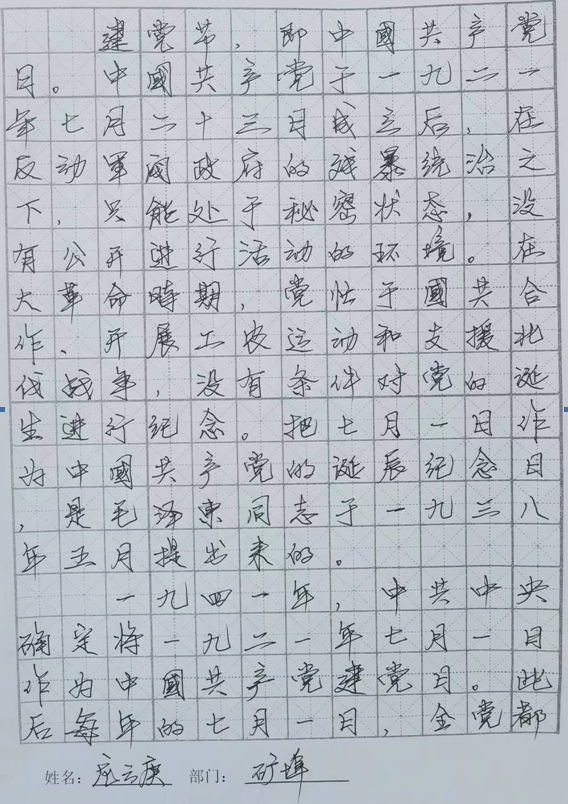 建党节，即中國共产党
日。中國共产党于一九二一
年七月二十三日成立后，在
反动軍阀政府的残暴统治之
下，只能处于秘密状态，没
有公开进行活动的环境。在
大革命時期，党忙于國共合
作、开展工农运动和支援北
伐战争，没有条件对党的诞
生进行纪念。把七月一日作
为中國共产党的诞辰纪念日
，是毛泽東同志于一九三八
年五月提出来的。
一九四一年，中共中央
确定将一九二一年七月一日
作为中國共产党建党日。此
后每年的七月一日，全党都
姓名：应云庚 部门：矿埠